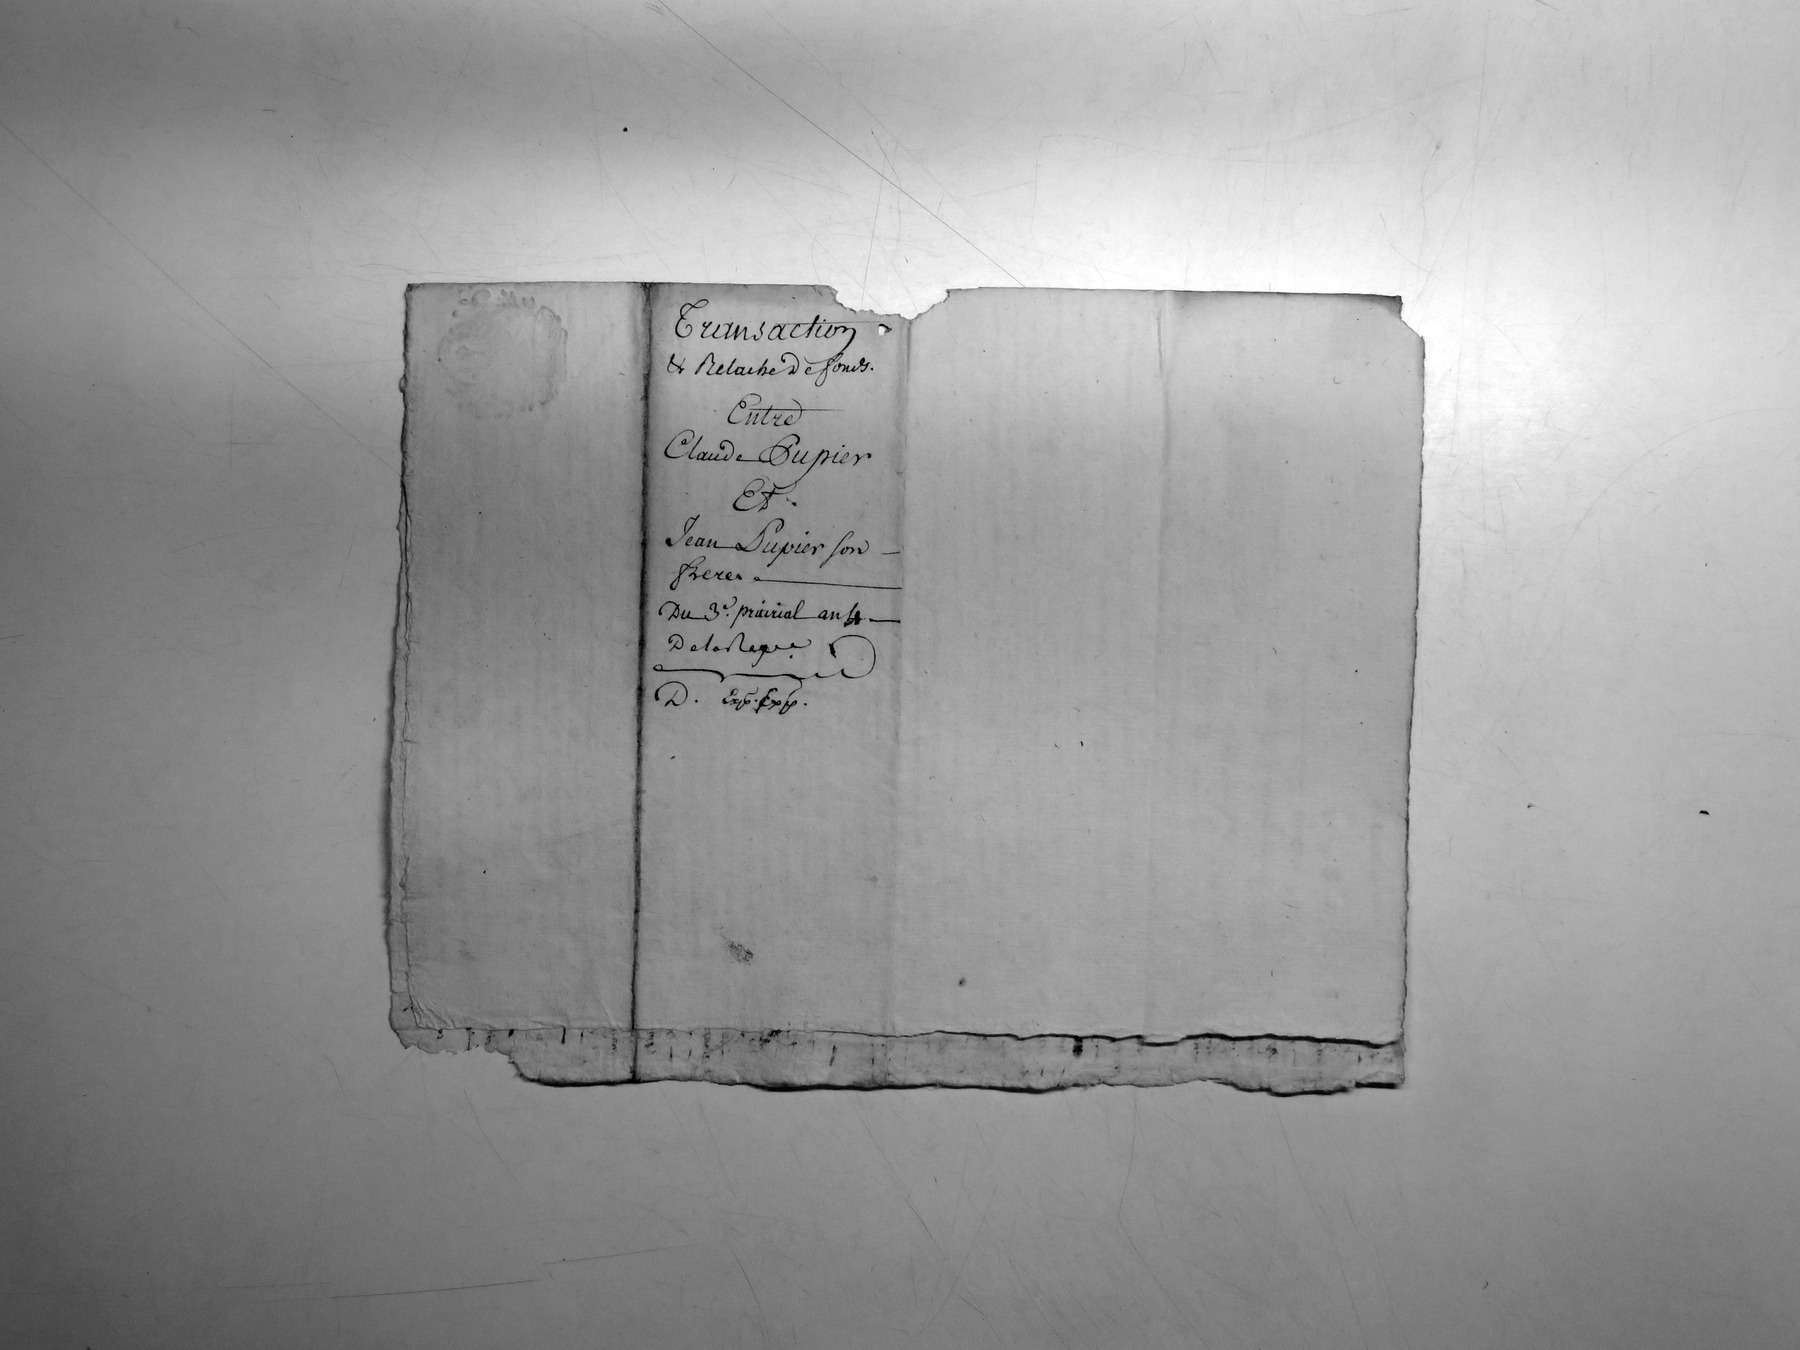 Transaction
& Relache De fonds.
Entre
Claude Pupier
Et
Jean Pupier son
frere
Du 3e. prairial an 4
D. Exp. Exp.